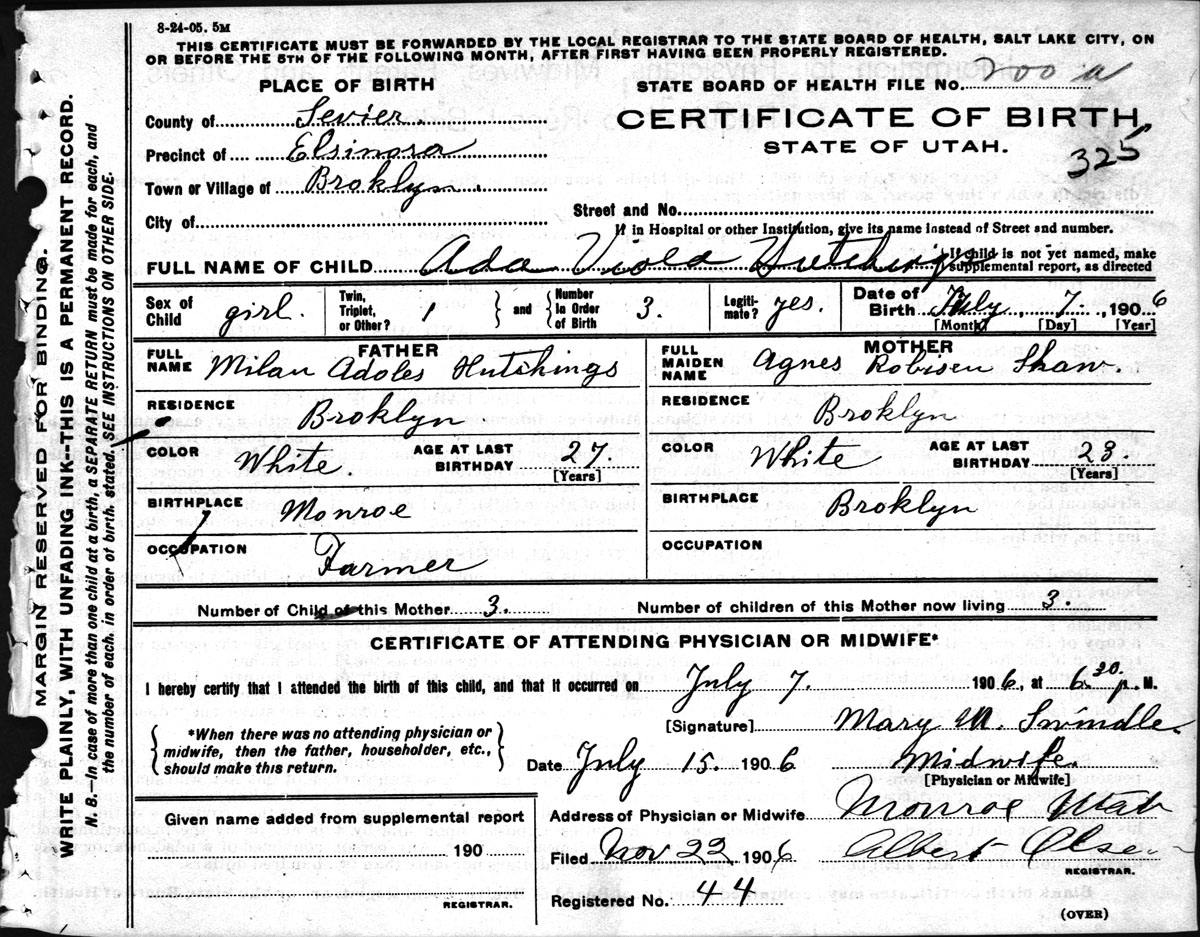 8-24-05. 5M
THIS CERTIFICATE MUST BE FORWARDED BY THE LOCAL REGISTRAR TO THE STATE BOARD OF HEALTH, SALT LAKE CITY, ON
OR BEFORE THE 5TH OF THE FOLLOWING MONTH, AFTER FIRST HAVING BEEN PROPERLY REGISTERED.
PLACE OF BIRTH
STATE BOARD OF HEALTH FILE NO. 200 a
County of Sevier
CERTIFICATE OF BIRTH,
Precinct of Elsinora
STATE OF UTAH.
325
Town or Village of Broklyn.
City of
Street and No.
If in Hospital or other Institution, give its name instead of Street and number.
FULL NAME OF CHILD Ada Viola Hutchings
If child is not yet named, make supplemental report, as directed
Sex of Child girl. Twin, Triplet, or Other? 1 and Number in Order of Birth 3. Legiti- mate? yes. Date of Birth July 7, 1906
[Month] [Day] [Year]
FATHER
FULL NAME Milan Adoles Hutchings
MOTHER
FULL MAIDEN NAME Agnes Robisen Shaw.
RESIDENCE Broklyn
RESIDENCE Broklyn
COLOR White. AGE AT LAST BIRTHDAY 27 [Years]
COLOR White AGE AT LAST BIRTHDAY 23 [Years]
BIRTHPLACE Monroe
BIRTHPLACE Broklyn
OCCUPATION Farmer
OCCUPATION
Number of Child of this Mother 3. Number of children of this Mother now living 3.
CERTIFICATE OF ATTENDING PHYSICIAN OR MIDWIFE*
I hereby certify that I attended the birth of this child, and that it occurred on July 7. 1906, at 6 30 p. M.
[Signature] Mary M. Swindle.
*When there was no attending physician or
midwife, then the father, householder, etc.,
should make this return.
Date July 15. 1906 Midwife.
[Physician or Midwife]
Given name added from supplemental report
190
REGISTRAR.
Address of Physician or Midwife Monroe Utah
Filed Nov 22 1906 Albert Olsen
REGISTRAR.
Registered No. 44
(OVER)
MARGIN RESERVED FOR BINDING.
WRITE PLAINLY, WITH UNFADING INK--THIS IS A PERMANENT RECORD.
N. B.—In case of more than one child at a birth, a SEPARATE RETURN must be made for each, and
the number of each, in order of birth, stated. SEE INSTRUCTIONS ON OTHER SIDE.